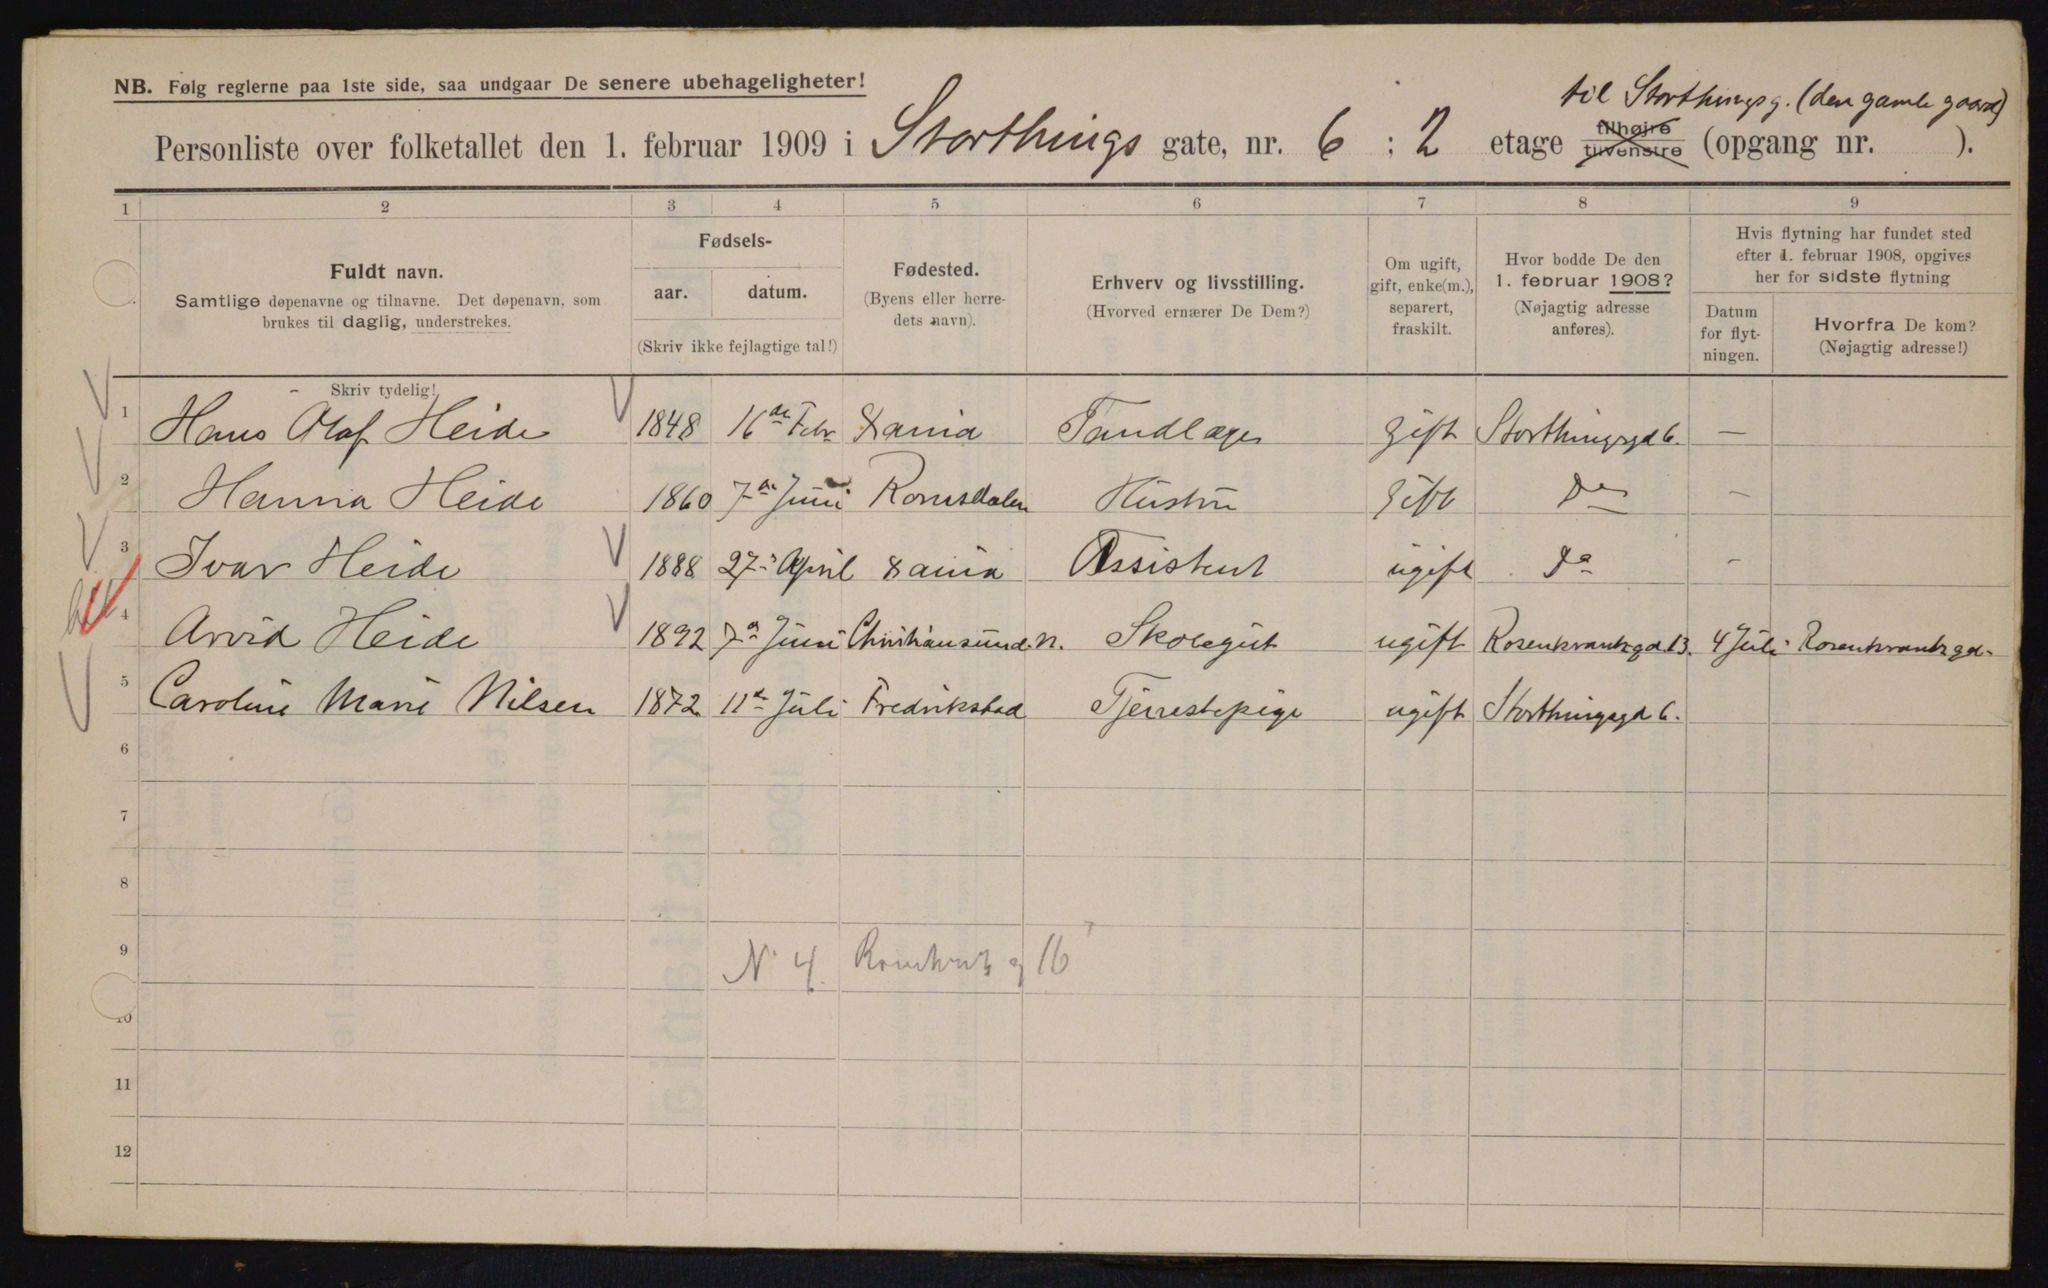 NB. Følg reglerne paa 1ste side, saa undgaar De senere ubehageligheter!
til Storthingsg. (den gamle gaard)
Personliste over folketallet den 1. februar 1909 i Storthings gate, nr. 6 : 2 etage tilhøjre tilvenstre (opgang nr. ).
1 2 3 4 5 6 7 8 9
Fuldt navn.
Samtlige døpenavne og tilnavne. Det døpenavn, som
brukes til daglig, understrekes.
Skriv tydelig!
Fødsels-
aar. datum.
(Skriv ikke fejlagtige tal!)
Fødested.
(Byens eller herre-
dets navn).
Erhverv og livsstilling.
(Hvorved ernærer De Dem?)
Om ugift,
gift, enke(m.),
separert,
fraskilt.
Hvor bodde De den
1. februar 1908?
(Nøjagtig adresse
anføres).
Hvis flytning har fundet sted
efter 1. februar 1908, opgives
her for sidste flytning
Datum
for flyt-
ningen.
Hvorfra De kom?
(Nøjagtig adresse!)
1 Hans Olaf Heide 1848 16de Febr Xania Tandlæge gift Storthingsgd 6. —
2 Hanna Heide 1860 7de Juni Romsdalen Hustru gift Do —
3 Ivar Heide 1888 27: April Xania Assistent ugift Do —
4 Arvid Heide 1892 7de Juni Christiansund N. Skolegut ugift Rosenkrantzgd. 13. 4 Juli Rosenkrantzgd.
5 Caroline Marie Nilsen 1872 11te Juli Fredrikstad Tjenestepige ugift Storthingsgd 6.
6
7
8
9 N. 4. 16
10
11
12